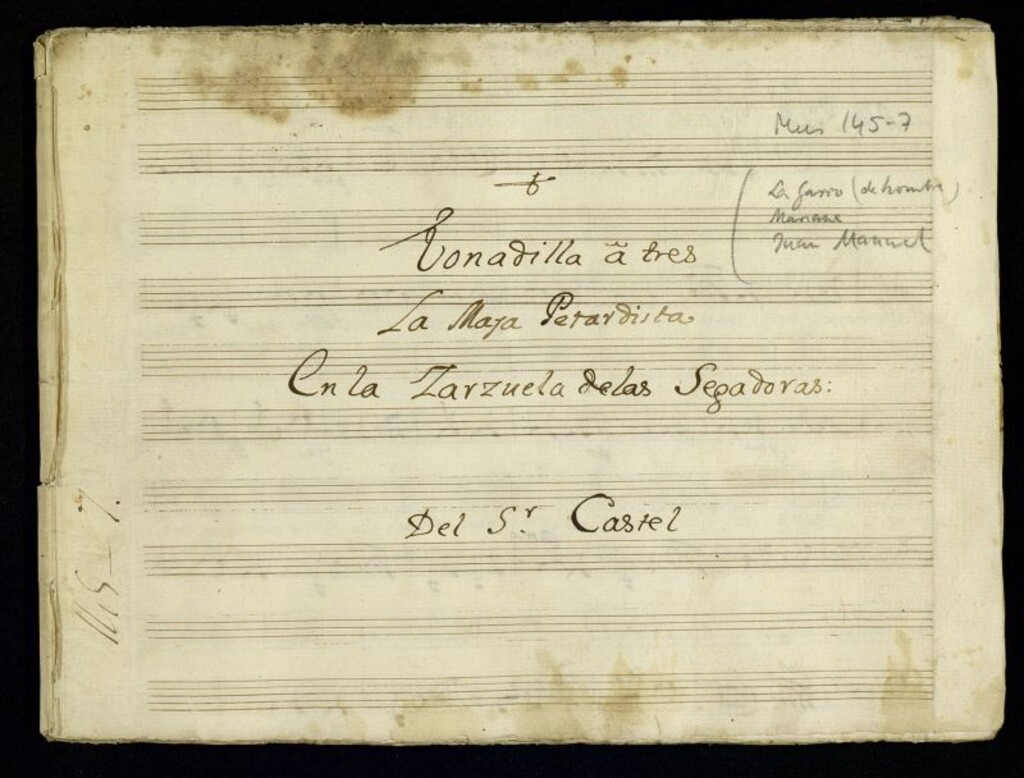 Mus 145-7
La Garro (de hombre)
Mariana
Juan Manuel
Tonadilla â tres
La Maja Petardista
En la Zarzuela delas Segadoras:
Del S.r Castel
145-7.